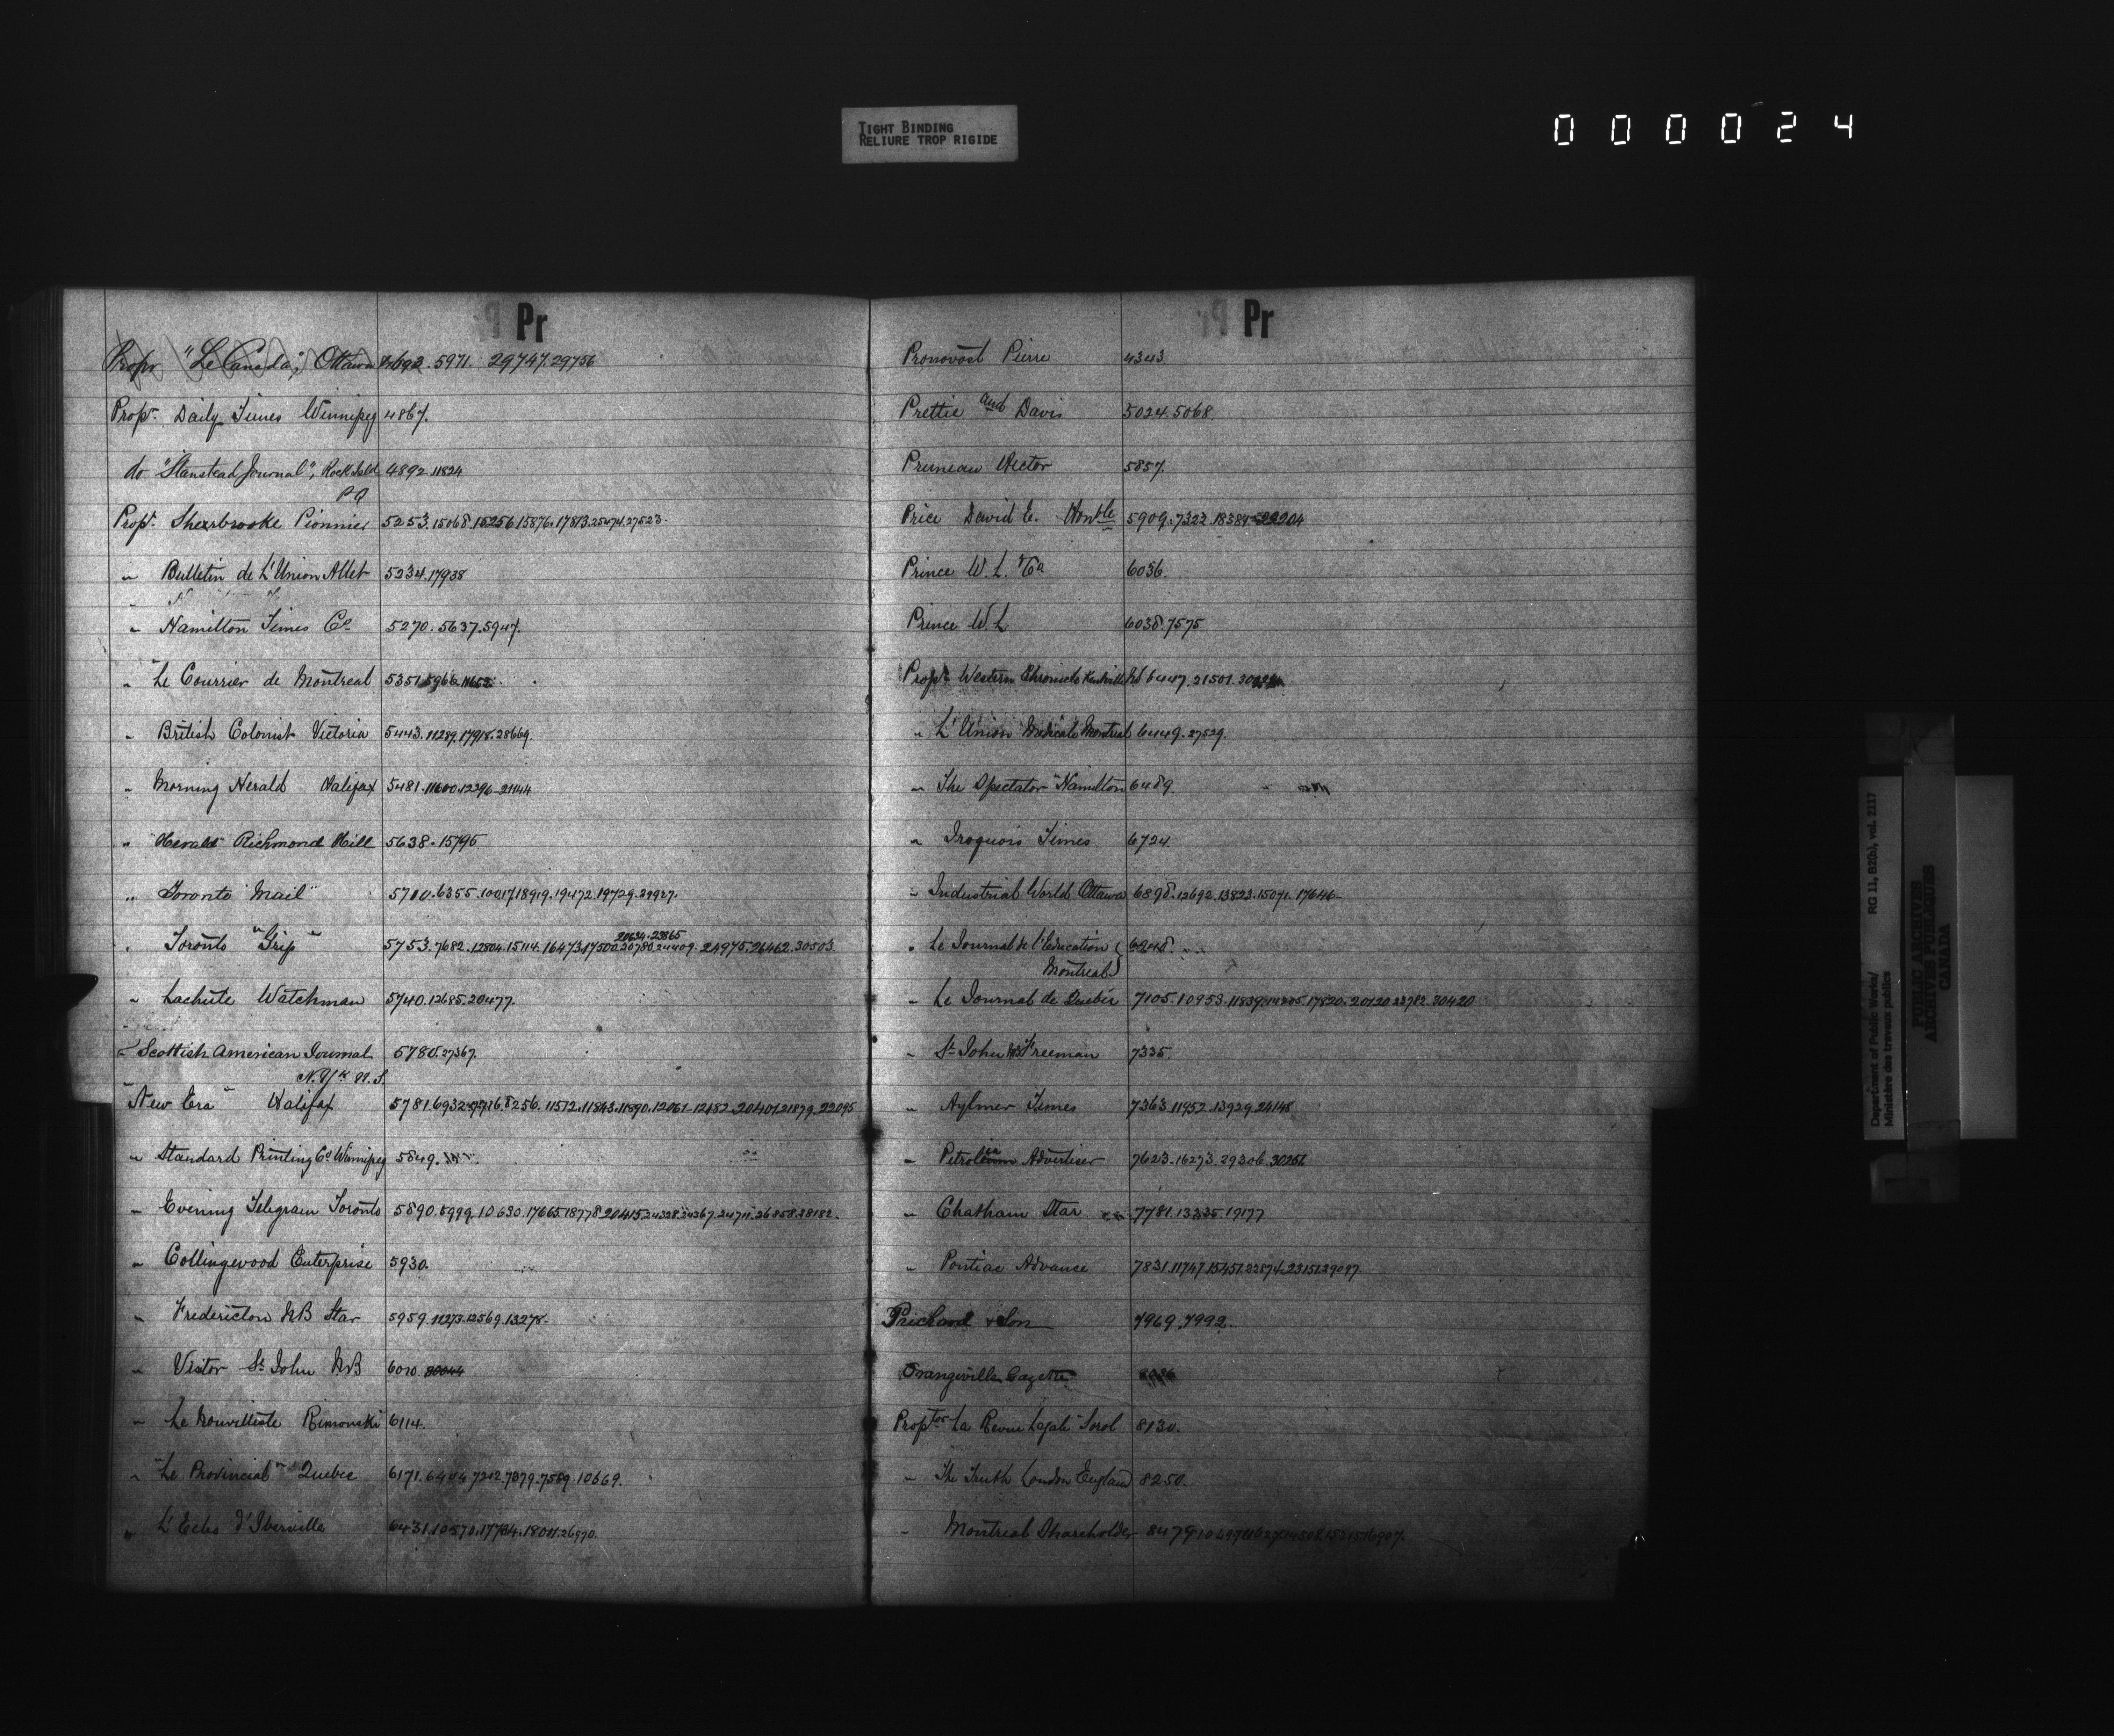 TIGHT BINDING
RELIURE TROP RIGIDE
000024
Pr
Propr "Le Canada", Ottawa 4692. 5971. 29747. 29756
Propr. Daily Times Winnipeg 4867.
do "Stanstead Journal", Rock Island 4892. 11824
PQ
Propr. Sherbrooke Pionnier 5253. 15068. 15256. 15876. 17813. 25474. 27523.
" Bulletin de L'Union Allet 5234. 17938
" Hamilton Times Co 5270. 5637. 5947.
" Le Courrier de Montreal 5351. 5966.
" British Colonist Victoria 5443. 11289. 17918. 28669.
" Morning Herald Halifax 5481. 11600. 12296. 21144
" "Herald" Richmond Hill 5638. 15795
" Toronto "Mail" 5700. 6355. 10017. 18919. 19472. 19729. 29937.
20634. 23865
" Toronto "Grip" 5753. 7682. 12804. 15114. 16473. 17500. 20780. 24409. 24975. 26462. 30503
" Lachute Watchman 5740. 12685. 20477.
" Scottish American Journal 5780. 27367.
N. Yk U.S.
"New Era" Halifax 5781. 6932. 8256. 11572. 11843. 11890. 12061. 12182. 20401. 21879. 22095
" Standard Printing Co Winnipeg 5849.
" Evening Telegram Toronto 5890. 5999. 10630. 17665. 18778. 20415. 24328. 24367. 24711. 26858. 28182.
" Collingwood Enterprise 5930.
" Fredericton NB Star 5959. 11273. 12569. 13278.
" Visitor St John N.B 6010.
" Le Nouvelliste Rimouski 6114.
" "Le Provincial" Quebec 6171. 6404. 7212. 7379. 7559. 10669.
" L'Echo d'Iberville 6431. 10570. 17764. 18001. 26970.
Pr
Pronovost Pierre 4343
Prettie and Davis 5024. 5068.
Pruneau Hector 5857.
Price David E. Honble 5909. 7322. 18384.
Prince W. L. & Co 6036.
Prince W. L 6038. 7575
Propr Western Chronicle Kentville NS 6447. 21501.
" L'Union Medicale Montreal 6449. 27529.
" The Spectator "Hamilton 6489.
" Iroquois Times 6724
" Industrial World Ottawa 6898. 12692. 13823. 15071. 17646.
" Le Journal de l'Education 6248.
Montreal
" Le Journal de Quebec 7105. 10953. 11839. 14205. 17820. 20120. 23782. 30420
" St John NB Freeman 7335.
" Aylmer Times 7363. 11952. 13929. 24148
" Petrolia Advertiser 7623. 16273. 29306. 30251.
" Chatham Star 7781. 13335. 19177
" Pontiac Advance 7831. 11747. 15451. 22874. 23151. 29097.
Prichard & Son 7969. 7992.
Orangeville Gazette
Proptor La Revue Legale Sorel 8130.
" The Truth London England 8250.
" Montreal Shareholder 8479
Department of Public Works/
Ministère des travaux publics
RG 11, B2(b), vol. 2117
PUBLIC ARCHIVES
ARCHIVES PUBLIQUES
CANADA